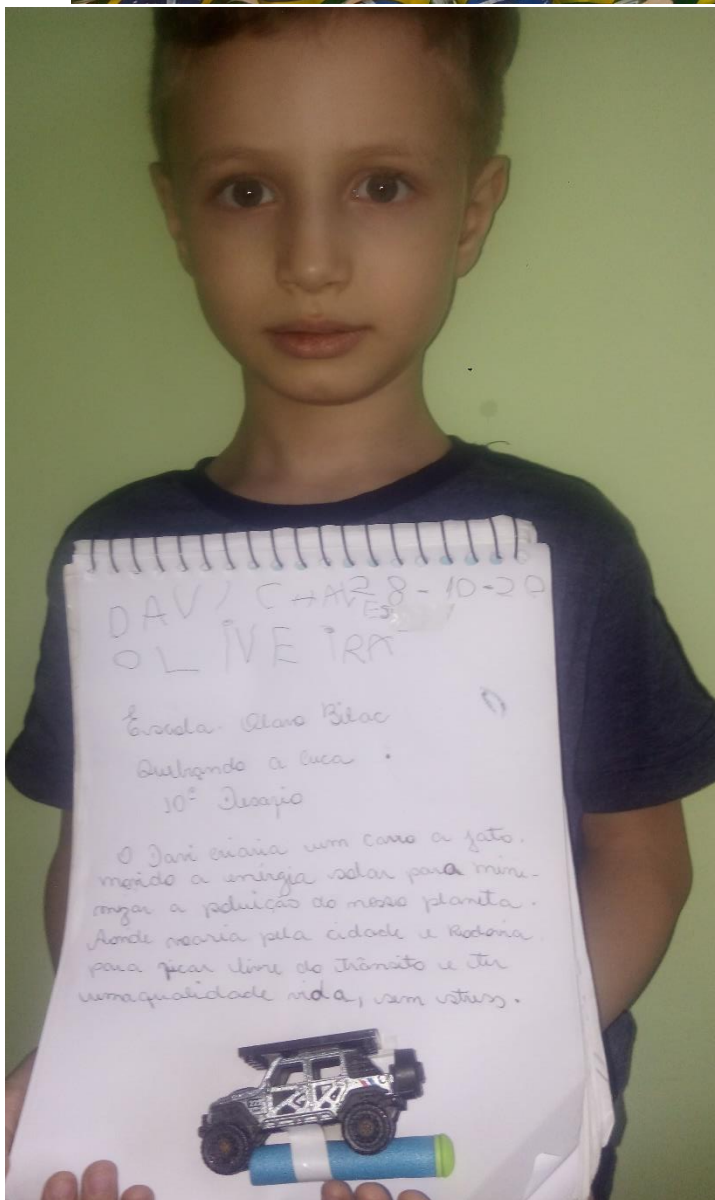 DAVI CHAVES 28-10-20
OLIVEIRA
Escola Olavo Bilac
Quebrando a cuca.
10º Desafio
O Davi criaria um carro a jato.
movido a energia solar para mini-
mizar a poluição do nosso planeta.
Aonde voaria pela cidade e Rodovia
para ficar livre do trânsito e ter
uma qualidade vida, sem stress.